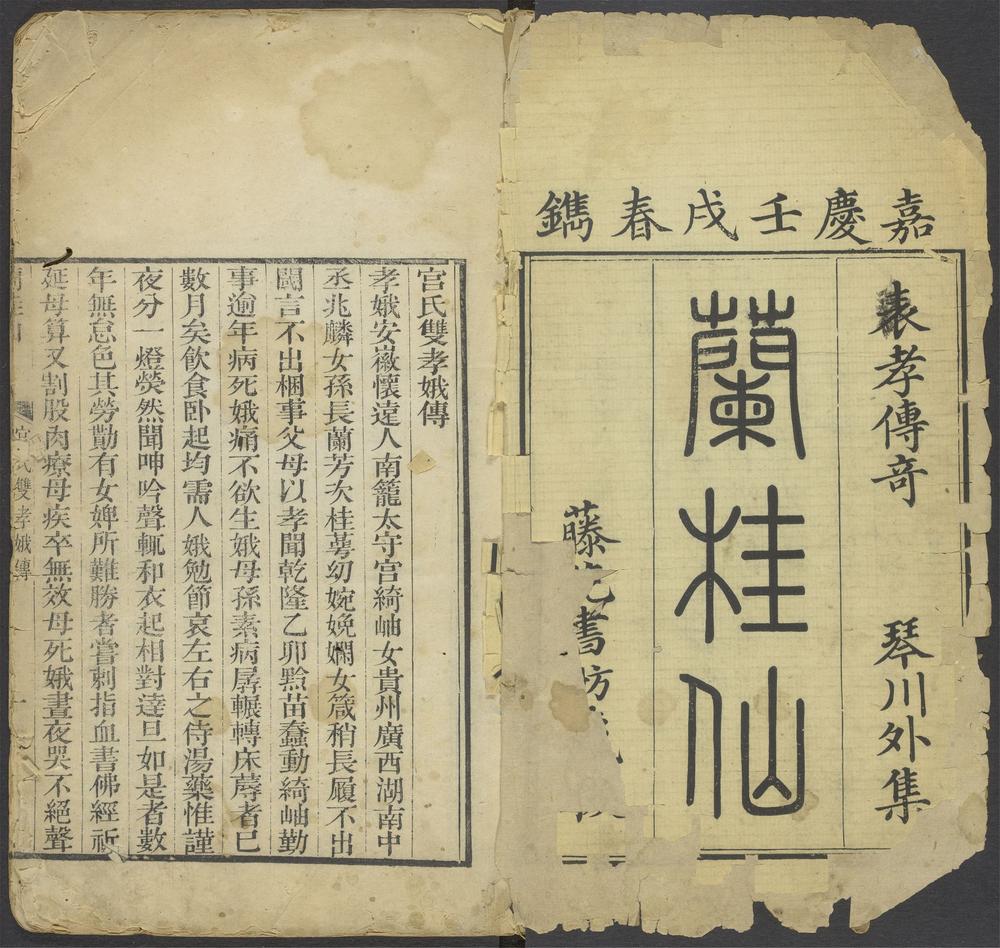 嘉慶壬戌春鐫
表孝傳奇　琴川外集
蘭桂仙
藤花書坊
宮氏雙孝娥傳
孝娥安徽懷遠人南籠太守宮綺岫女貴州廣西湖南中
丞兆麟女孫長蘭芳次桂萼幼婉娩嫻女箴稍長履不出
閾言不出梱事父母以孝聞乾隆乙卯黔苗蠢動綺岫勤
事逾年病死娥痛不欲生娥母孫素病孱輾轉床蓐者已
數月矣飲食臥起均需人娥勉節哀左右之侍湯藥惟謹
夜分一燈熒然聞呻吟聲輒和衣起相對達旦如是者數
年無怠色其勞勩有女婢所難勝者嘗刺指血書佛經祈
延母算又割股肉療母疾卒無效母死娥晝夜哭不絕聲
氏雙孝娥傳